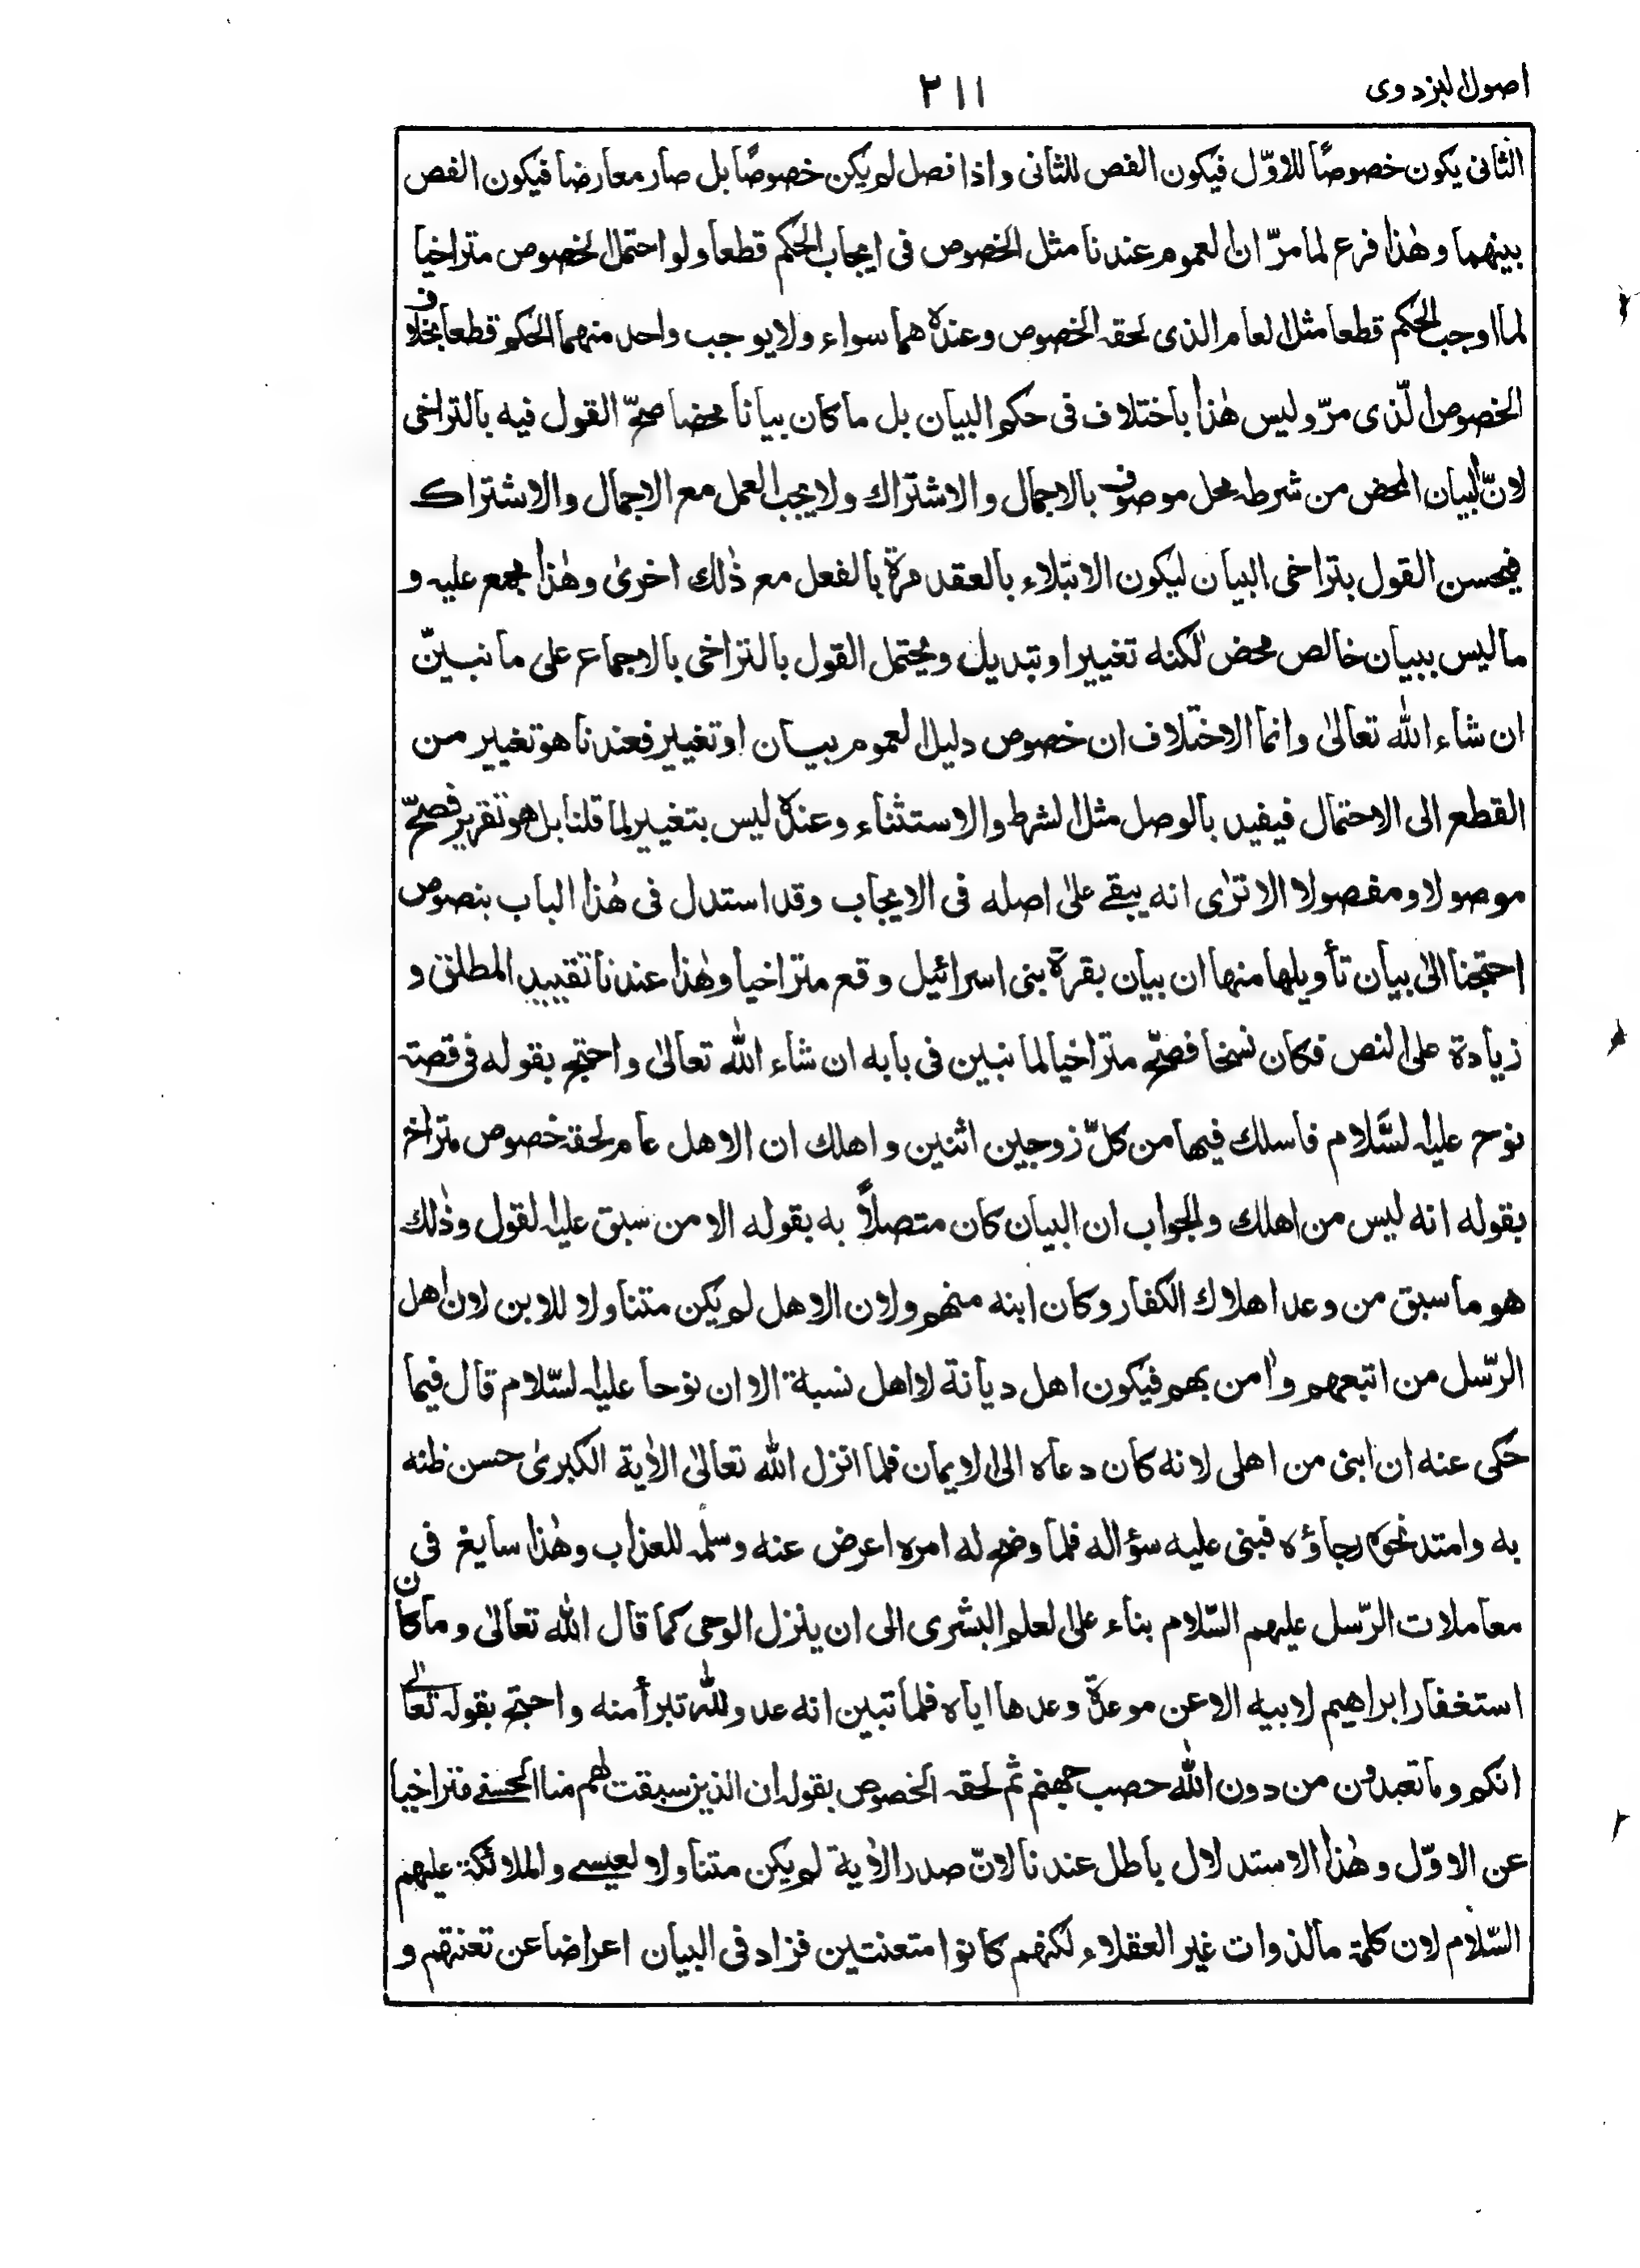 اصول البزدوی
٢١١
الثانی یکون خصوصًا للاوّل فیکون الفص للثانی واذا فصل لم یکن خصوصًا بل صار معارضا فیکون الفص
بینهما وهٰذا فرع لما مرّ ان العموم عندنا مثل الخصوص فی ایجاب الحکم قطعا ولو احتمل الخصوص متراخیا
لما اوجب الحکم قطعا مثل العام الذی لحقه الخصوص وعندہ هما سواء ولا یوجب واحد منهما الحکم قطعا بخلاف
الخصوص الّذی مرّ ولیس هٰذا باختلاف فی حکم البیان بل ما کان بیانا محضا صحّ القول فیه بالتراخی
لانّ البیان المحض من شرطه محل موصوف بالاجمال والاشتراک ولا یجب العمل مع الاجمال والاشتراک
فیحسن القول بتراخی البیان لیکون الابتلاء بالعقد مرة بالفعل مع ذٰلک اخریٰ وهٰذا مجمع علیه و
ما لیس ببیان خالص محض لٰکنه تغییر او تبدیل ویحتمل القول بالتراخی بالاجماع علی ما نبینّ
ان شاء اللّٰه تعالیٰ وانما الاختلاف ان خصوص دلیل العموم بیان او تغییر فعندنا هو تغییر من
القطع الی الاحتمال فیفید بالوصل مثل الشرط والاستثناء وعندہ لیس بتغییر لما قلنا بل هو تقریر فصحّ
موصولا ومفصولا الا ترٰی انه یبقے علیٰ اصله فی الایجاب وقد استدل فی هٰذا الباب بنصوص
احتجنا الیٰ بیان تأویلها منها ان بیان بقرة بنی اسرائیل وقع متراخیا وهٰذا عندنا تقیید المطلق و
زیادة علی النص فکان نسخا فصحّ متراخیا لما نبین فی بابه ان شاء اللّٰه تعالیٰ واحتج بقوله فی قصة
نوح علیه السَّلام فاسلک فیها من کلّ زوجین اثنین واهلک ان الاهل عام لحقه خصوص متراخ
بقوله انه لیس من اهلک والجواب ان البیان کان متصلاً به بقوله الا من سبق علیه القول وذٰلک
هو ما سبق من وعد اهلاک الکفار وکان ابنه منهم ولان الاهل لم یکن متناولا للابن لان اهل
الرّسل من اتبعهم واٰمن بهم فیکون اهل دیانة لا اهل نسبة الا ان نوحا علیه السّلام قال فیما
حکی عنه ان ابنی من اهلی لانه کان دعاہ الی الایمان فلما انزل اللّٰه تعالیٰ الاٰیة الکبریٰ حسن ظنه
به وامتد نحوہ رجاؤہ فبنی علیه سؤاله فلما وضح له امرہ اعرض عنه وسلّمه للعذاب وهٰذا سایغ فی
معاملات الرّسل علیهم السّلام بناء علی العلم البشری الی ان ینزل الوحی کما قال اللّٰه تعالیٰ وما کان
استغفار ابراهیم لابیه الا عن موعدة وعدها ایاہ فلما تبین انه عدو للّٰه تبرأ منه واحتج بقوله تعالیٰ
انکم وما تعبدون من دون اللّٰه حصب جهنم ثم لحقه الخصوص بقوله ان الذین سبقت لهم منا الحسنے متراخیا
عن الاوّل وهٰذا الاستدلال باطل عندنا لانّ صدر الاٰیة لم یکن متناولا لعیسے والملائکة علیهم
السّلام لان کلمة ما لذوات غیر العقلاء لکنهم کانوا متعنتین فزاد فی البیان اعراضا عن تعنتهم و